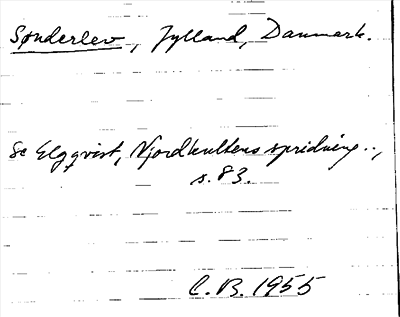 Sønderlev, Jylland, Danmark.
Se Elgqvist, Njordkultens spridning..,
s. 83.
C.B. 1955